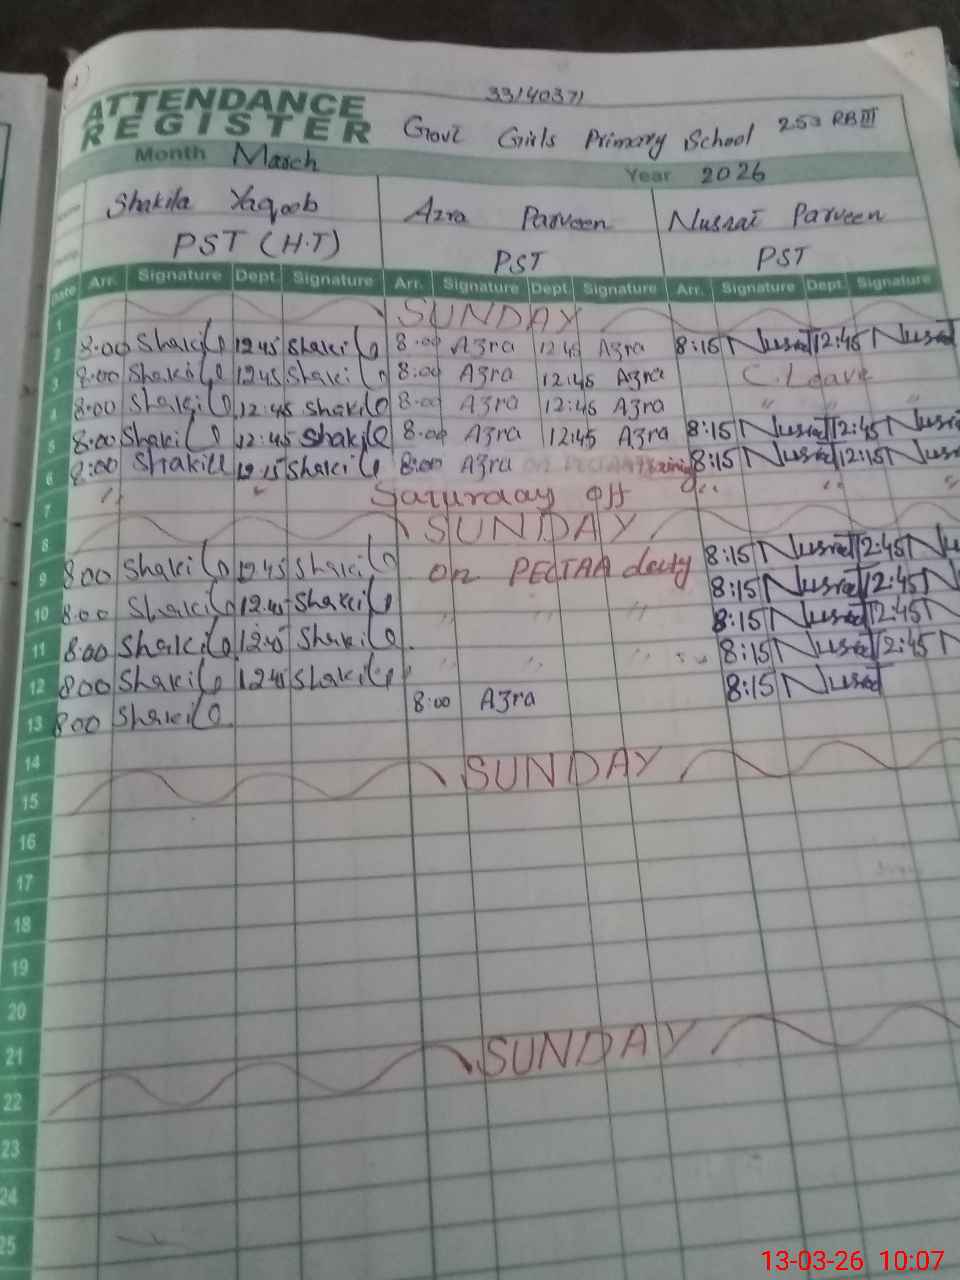 33140371
ATTENDANCE
REGISTER
Govt Girls Primary School 253 RB III
Month March Year 2026
Shakila Yaqoob Azra Parveen Nusrat Parveen
PST (H.T) PST PST
Date Arr. Signature Dept. Signature Arr. Signature Dept. Signature Arr. Signature Dept. Signature
1 SUNDAY
2 8:00 Shakila 12 45 Shakila 8:00 Azra 12 45 Azra 8:15 Nusrat 12:45 Nusrat
3 8:00 Shakila 12 45 Shakila 8:00 Azra 12:45 Azra C. Leave
4 8:00 Shakila 12:45 Shakila 8:00 Azra 12:45 Azra " " "
5 8:00 Shakila 12:45 Shakila 8:00 Azra 12:45 Azra 8:15 Nusrat 12:45 Nusrat
6 8:00 Shakila 12 15 Shakila 8:00 Azra on PECTAA Training 8:15 Nusrat 12:15 Nusrat
7 " " Saturday off " " "
8 SUNDAY
9 8:00 Shakila 12 45 Shakila on PECTAA duty 8:15 Nusrat 12:45 Nu
10 8:00 Shakila 12:45 Shakila " " " 8:15 Nusrat 12:45
11 8:00 Shakila 12:45 Shakila " " " 8:15 Nusrat 12:45
12 8:00 Shakila 12 45 Shakila " " " 8:15 Nusrat 12:45 N
13 8:00 Shakila 8:00 Azra 8:15 Nusrat
14
15 SUNDAY
16
17
18
19
20
21
22 SUNDAY
23
24
25
13-03-26 10:07